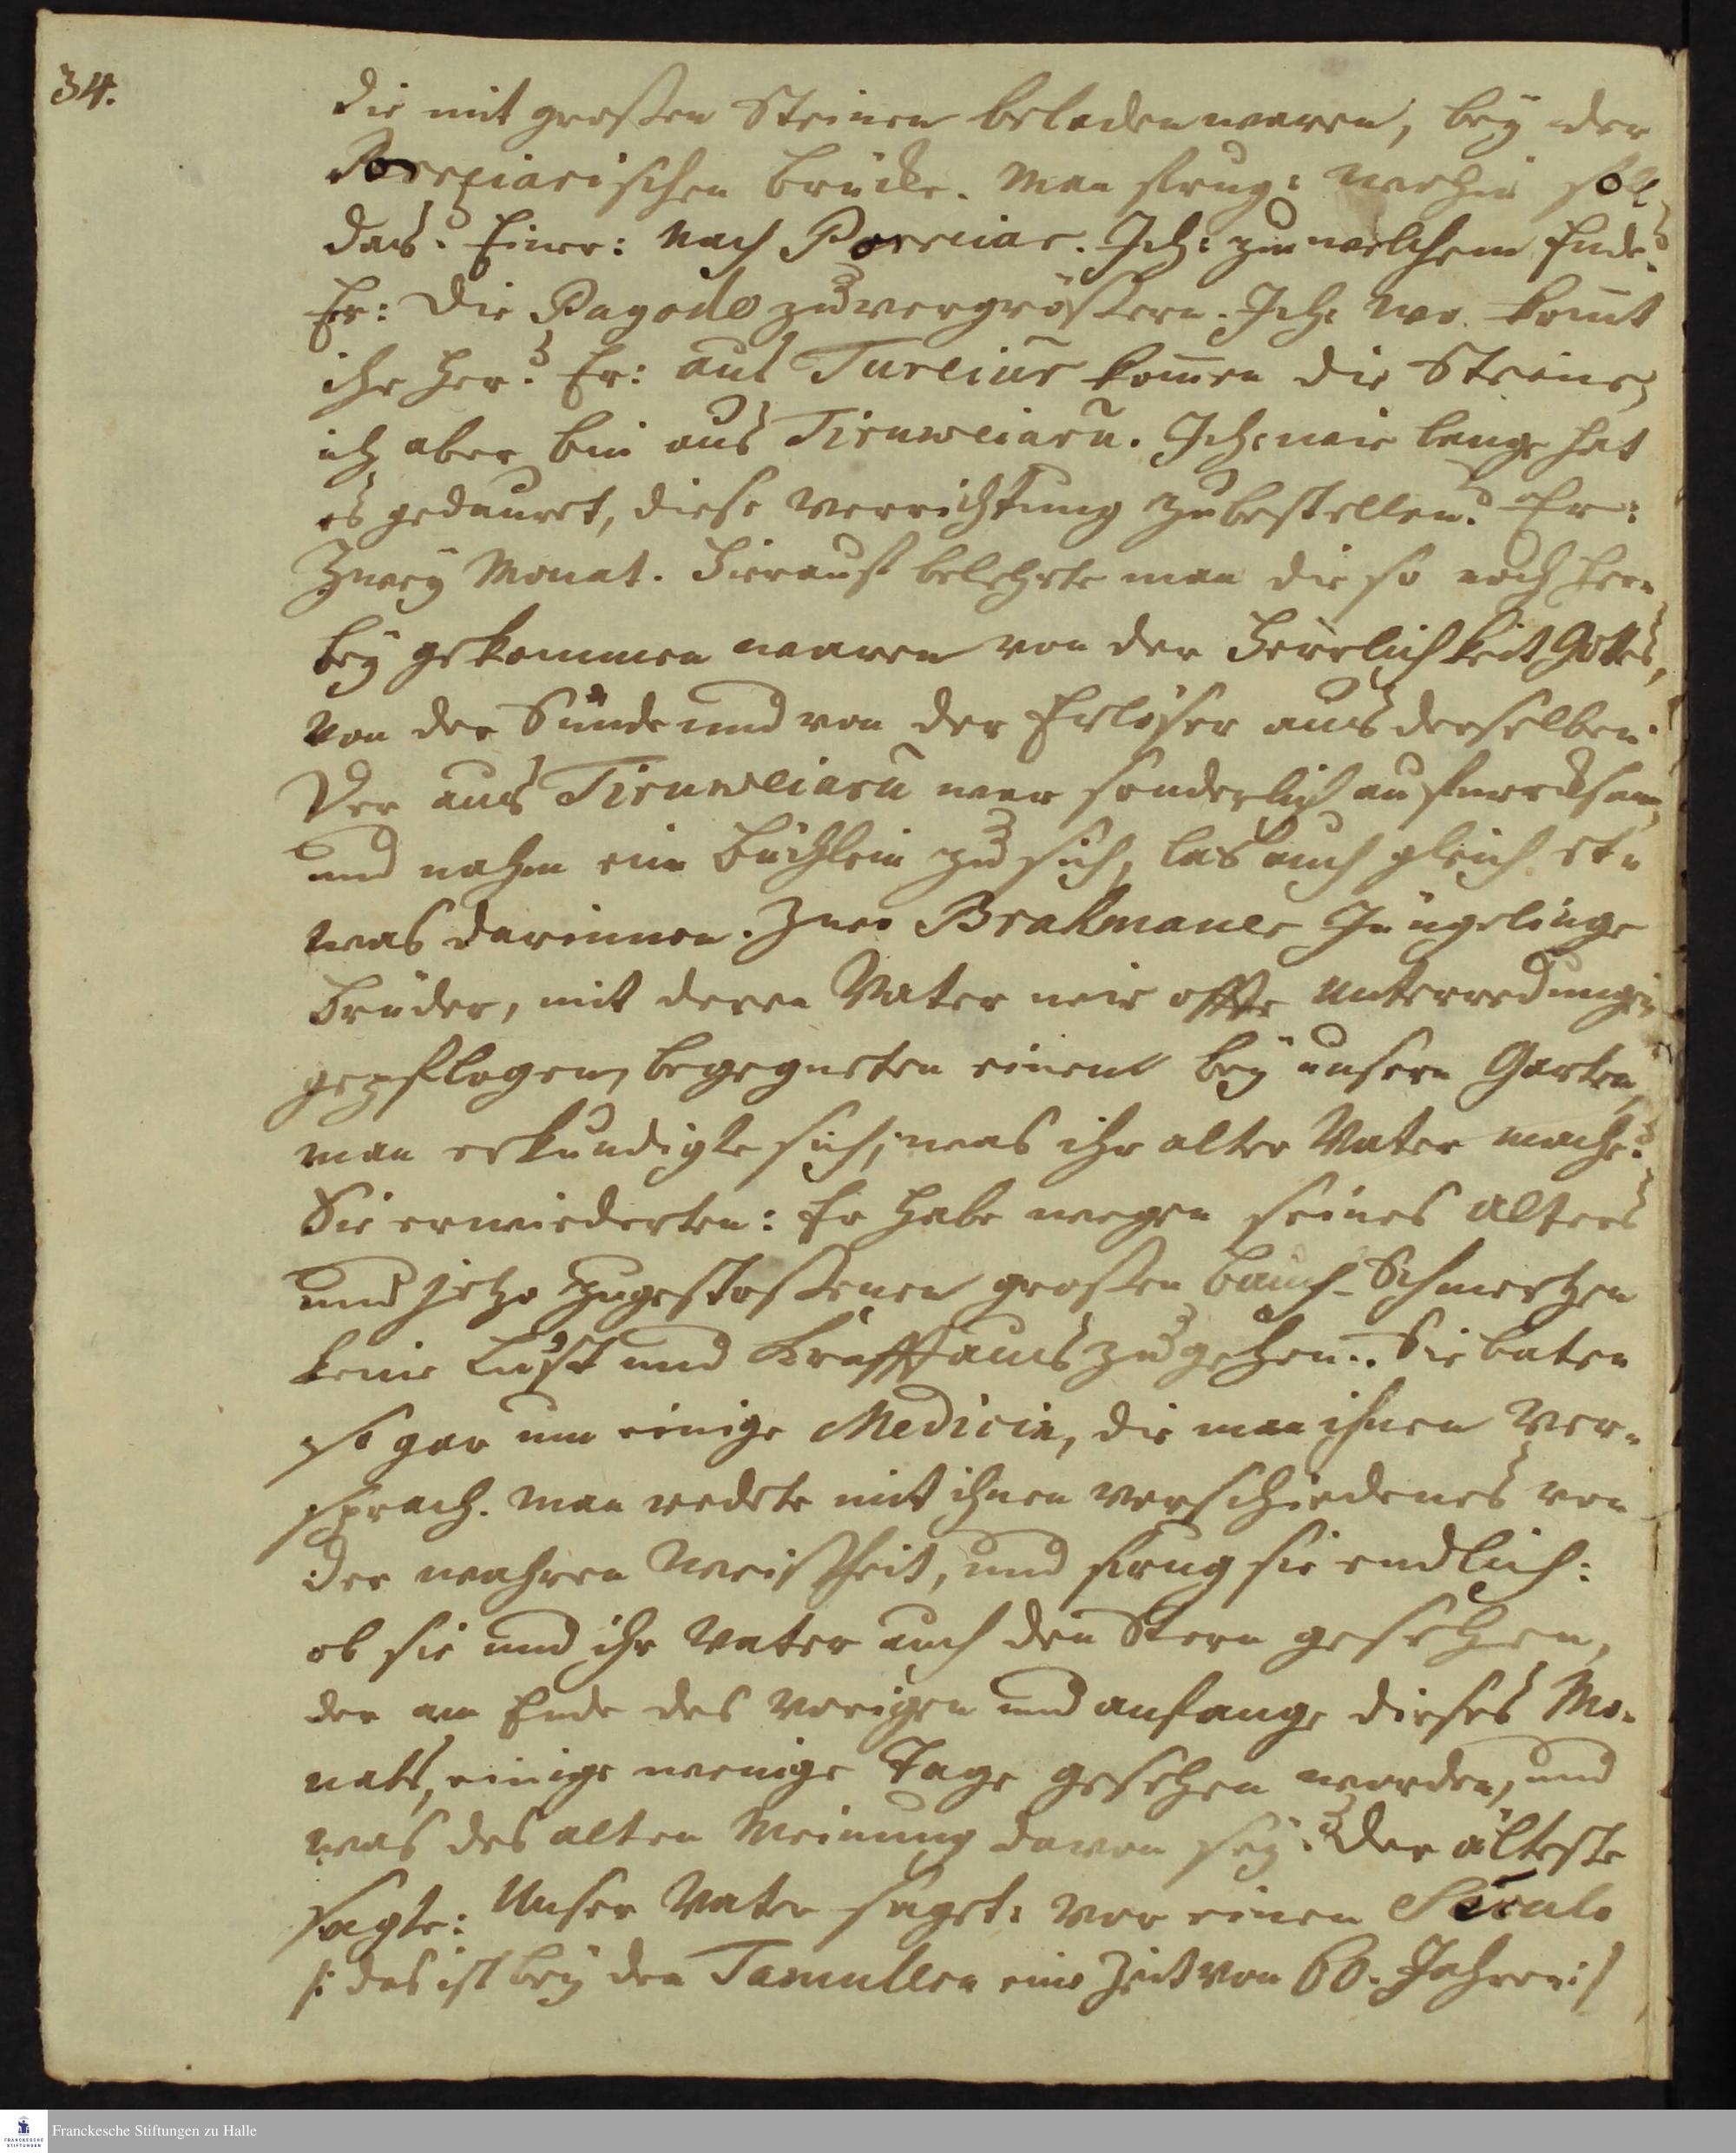 34.
die mit großen Steinen beladen waren, bey der
Porreiarischen Brücke. Man frug: wohin soll
das? Einer: nach Porreiar. Ich: zu welchem Ende?
Er: die Pagode zu vergrößern. Ich: wo komt
ihr her? Er: aus Tureiur komen die Steine,
ich aber bin aus Tiruweiaru. Ich: wie lange hat
es gedauret, diese Verrichtung zu bestellen? Er:
Zwey Monat. Hierauf belehrte man die so noch her-
bey gekommen waren von der Herrlichkeit Gottes,
von der Sünde und von der Erlöser aus derselben.
Der aus Tiruweiaru war sonderlich aufmercksam,
und nahm ein Büchlein zu sich, las auch gleich et-
was darinnen. Zwei Brahmaner Jüngelinge
Brüder, mit deren Vater wir offte Unterredungen
gepflogen, begegneten einem bey unsern Garten,
man erkundigte sich, was ihr alter Vater mache?
Sie erwiederten: Er habe wegen seines Alters
und jetzo zugestoßenen großen Bauch-Schmertzen
keine Lust und Krafft auszugehen. Sie baten
so gar um einige Medicin, die man ihnen ver-
sprach. Man redete mit ihnen verschiedenes von
der wahren Weisheit, und frug sie endlich:
ob sie und ihr Vater auch den Stern gesehen,
der am Ende des vorigen und anfange dieses Mo-
nats, einige wenige Tage gesehen worden, und
was des alten Meinung davon sey? Der älteste
sagte: Unser Vater saget: vor einen Seculo
/: das ist bey den Tamullen eine Zeit von 60. Jahren :/
Franckesche Stiftungen zu Halle
FRANCKESCHE
STIFTUNGEN